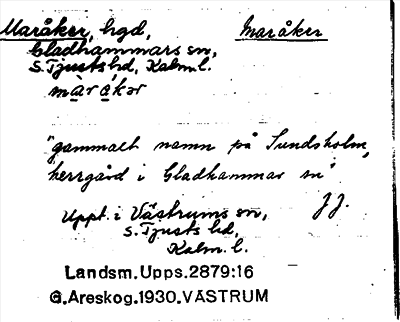 Maråker, hgd, Maråker
Gladhammars sn,
S. Tjusts hd, Kalm. l.
màråkər
"gammalt namn på Sundsholm,
herrgård i Gladhammar sn"
Uppt. i Västrums sn, J.J.
S. Tjusts hd,
Kalm. l.
Landsm. Upps. 2879:16
G. Areskog. 1930. VÄSTRUM